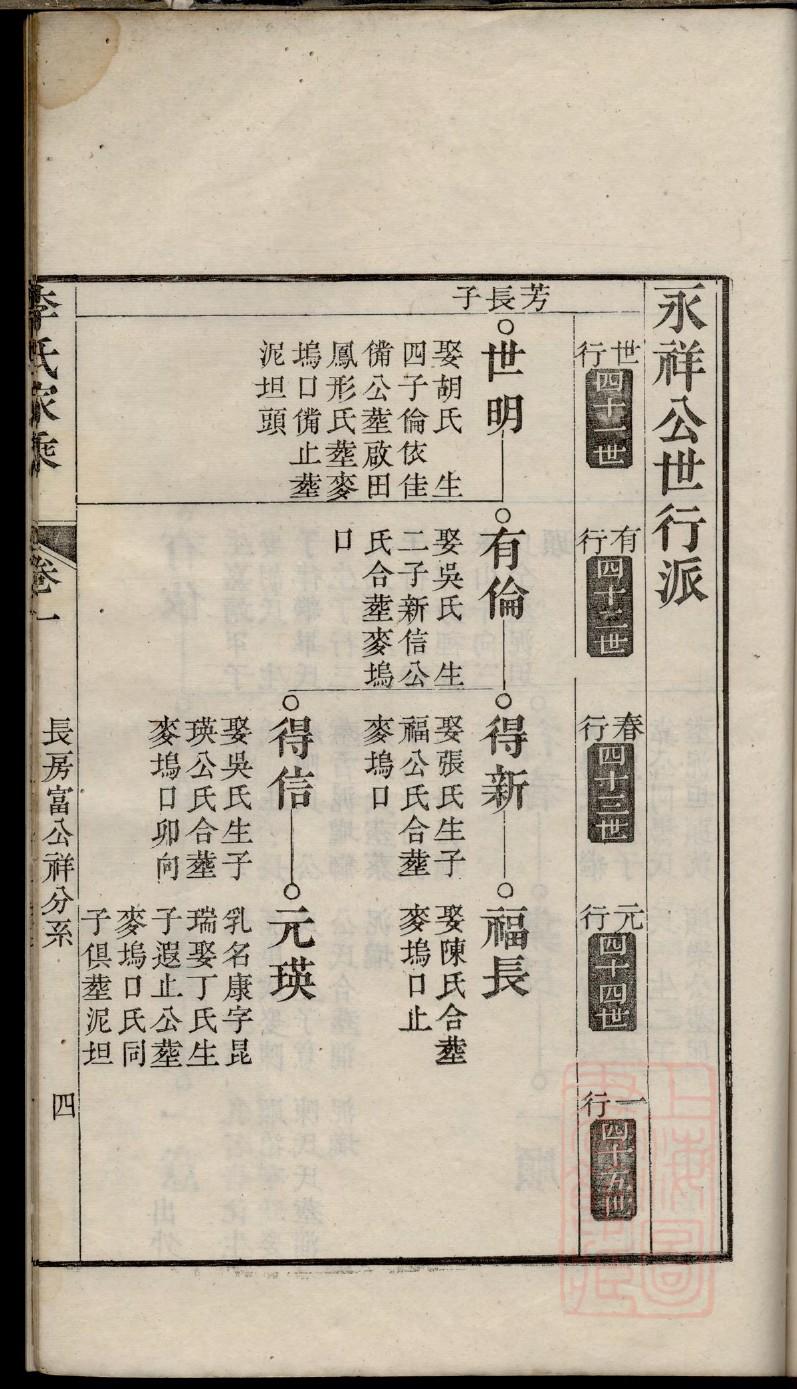 永祥公世行派
世行 四十一世
有行 四十二世
春行 四十三世
元行 四十四世
一行 四十五世
芳長子
世明
娶胡氏 生
四子倫依佳
備公塟啟田
鳳形氏塟麥
塢口備止塟
泥坦頭
有倫
娶吳氏 生
二子新信公
氏合塟麥塢
口
得新
娶張氏生子
福公氏合塟
麥塢口
福長
娶陳氏合塟
麥塢口止
得信
娶吳氏生子
瑛公氏合塟
麥塢口卯向
元瑛
乳名康字昆
瑞娶丁氏生
子遐止公塟
麥塢口氏同
子俱塟泥坦
李氏家乘
卷一
長房富公祥分系
四